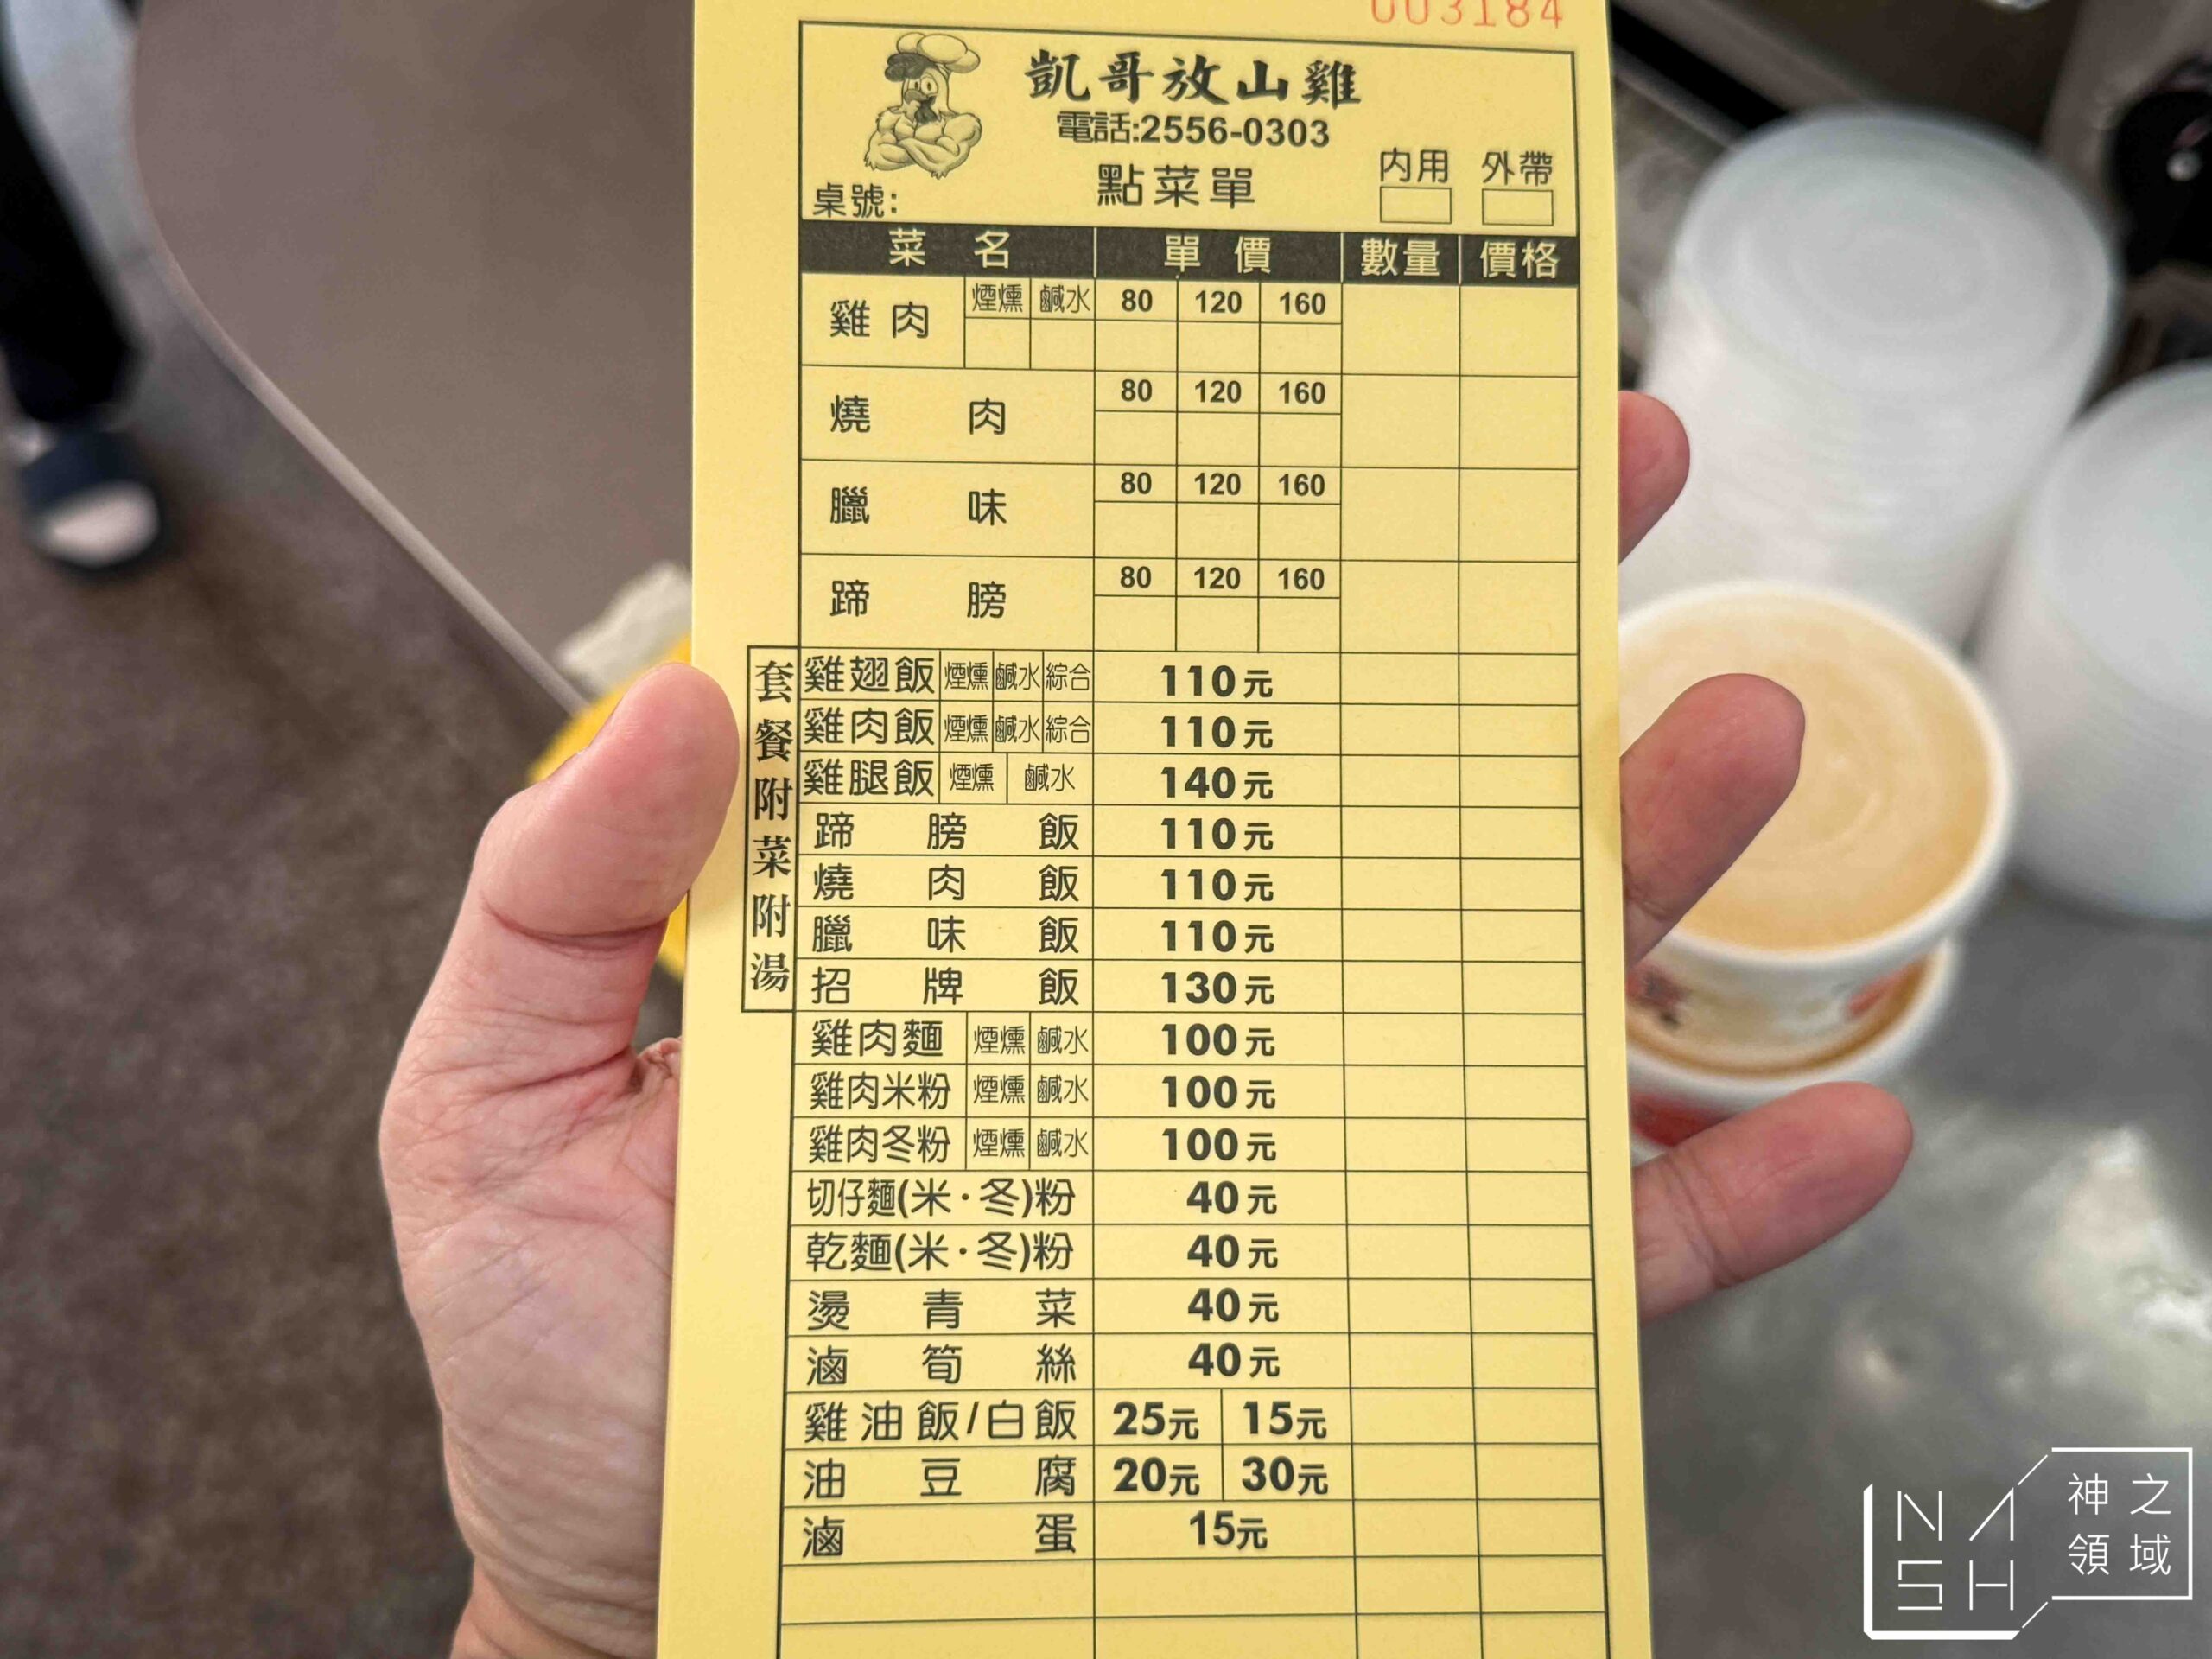 003184
凱哥放山雞
電話:2556-0303
點菜單
內用 外帶
桌號:
菜名 單價 數量 價格
雞肉 煙燻 鹹水 80 120 160
燒肉 80 120 160
臘味 80 120 160
蹄膀 80 120 160
套餐附菜附湯
雞翅飯 煙燻 鹹水 綜合 110元
雞肉飯 煙燻 鹹水 綜合 110元
雞腿飯 煙燻 鹹水 140元
蹄膀飯 110元
燒肉飯 110元
臘味飯 110元
招牌飯 130元
雞肉麵 煙燻 鹹水 100元
雞肉米粉 煙燻 鹹水 100元
雞肉冬粉 煙燻 鹹水 100元
切仔麵(米·冬)粉 40元
乾麵(米·冬)粉 40元
燙青菜 40元
滷筍絲 40元
雞油飯/白飯 25元 15元
油豆腐 20元 30元
滷蛋 15元
NASH
神之領域